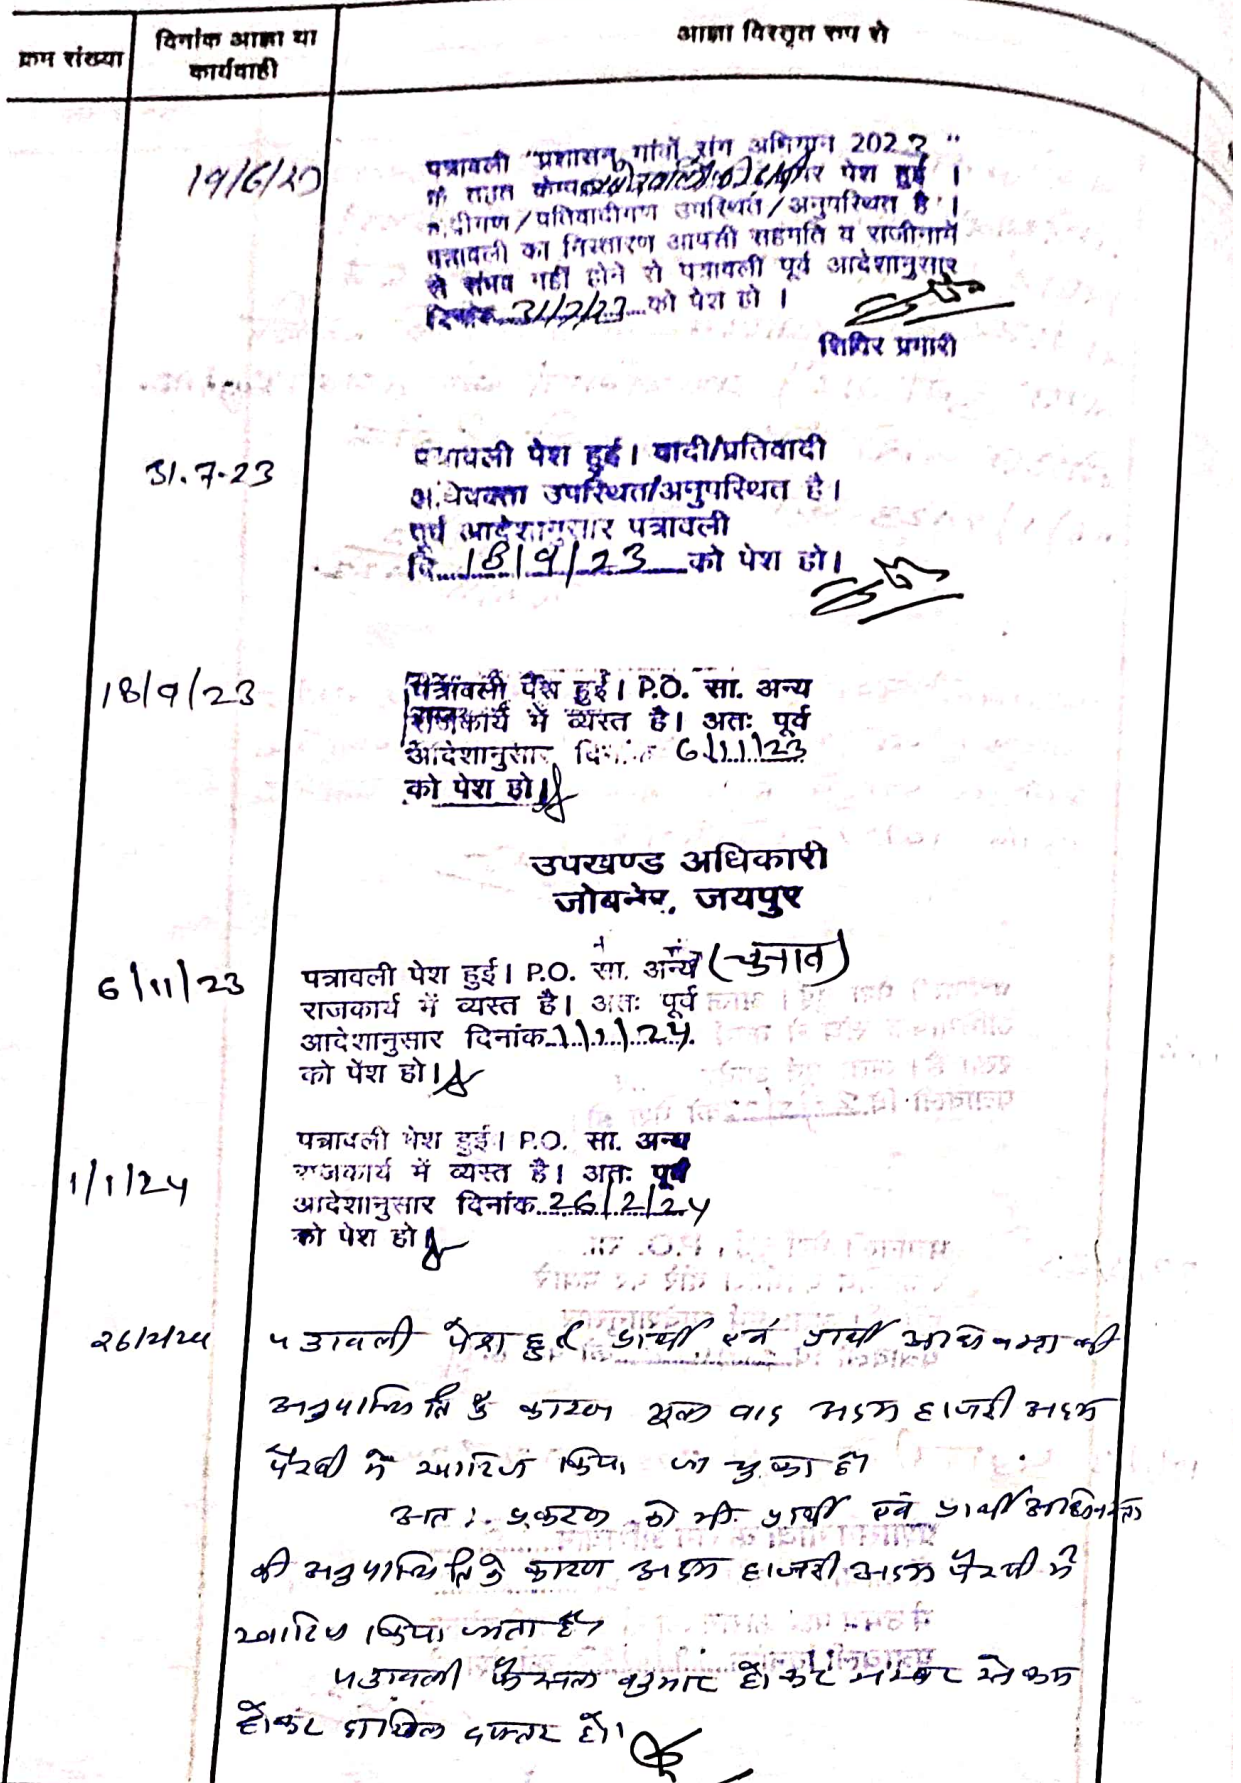 क्रम संख्या
दिनांक आज्ञा या
कार्यवाही
आज्ञा विस्तृत रूप से
19/6/23
पत्रावली "प्रशासन गांवों संग अभियान 2023"
के तहत केम्प पर पेश हुई ।
वादीगण/प्रतिवादीगण उपस्थित/अनुपस्थित है ।
पत्रावली का निस्तारण आपसी सहमति व राजीनामें
से संभव नहीं होने से पत्रावली पूर्व आदेशानुसार
दिनांक 31/7/23 को पेश हो ।
शिविर प्रभारी
31.7.23
पत्रावली पेश हुई। वादी/प्रतिवादी
अधिवक्ता उपस्थित/अनुपस्थित है।
पूर्व आदेशानुसार पत्रावली
दि. 18/9/23 को पेश हो।
18/9/23
पत्रावली पेश हुई। P.O. सा. अन्य
राजकार्य में व्यस्त है। अतः पूर्व
आदेशानुसार दिनांक 6/11/23
को पेश हो।
उपखण्ड अधिकारी
जोबनेर, जयपुर
6/11/23
पत्रावली पेश हुई। P.O. सा. अन्य (चुनाव)
राजकार्य में व्यस्त है। अतः पूर्व
आदेशानुसार दिनांक 1/1/24
को पेश हो।
1/1/24
पत्रावली पेश हुई। P.O. सा. अन्य
राजकार्य में व्यस्त है। अतः पूर्व
आदेशानुसार दिनांक 26/2/24
को पेश हो।
26/2/24
पत्रावली पेश हुई प्रार्थी एवं प्रार्थी अधिवक्ता की
अनुपस्थिति के कारण मूल वाद अदम हाजरी अदम
पैरवी में खारिज किया जा चुका है।
अतः प्रकरण को भी प्रार्थी एवं प्रार्थी अधिवक्ता
की अनुपस्थिति के कारण अदम हाजरी अदम पैरवी में
खारिज किया जाता है।
पत्रावली फैसल शुमार होकर नम्बर से कम
होकर दाखिल दफ्तर हो।